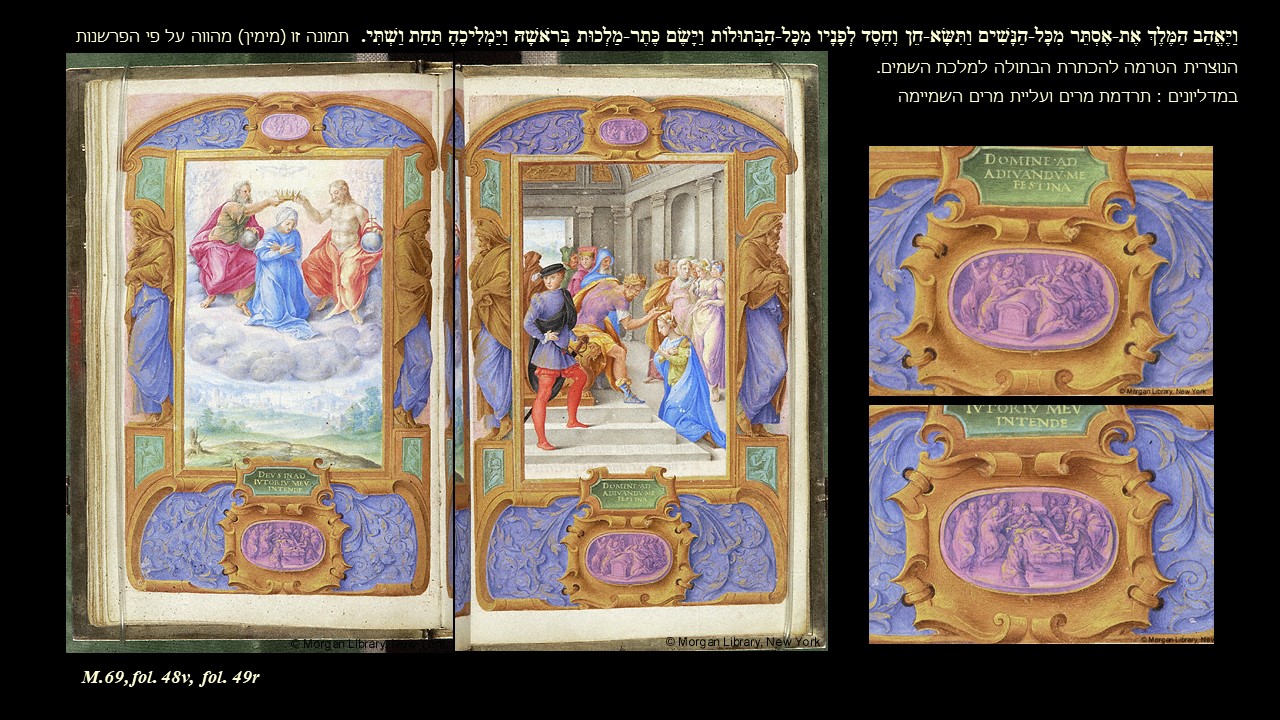 וַיֶּאֱהַב הַמֶּלֶךְ אֶת-אֶסְתֵּר מִכָּל-הַנָּשִׁים וַתִּשָּׂא-חֵן וָחֶסֶד לְפָנָיו מִכָּל-הַבְּתוּלוֹת וַיָּשֶׂם כֶּתֶר-מַלְכוּת בְּרֹאשָׁהּ וַיַּמְלִיכֶהָ תַּחַת וַשְׁתִּי. תמונה זו (מימין) מהווה על פי הפרשנות
הנוצרית הטרמה להכתרת הבתולה למלכת השמים.
במדליונים : תרדמת מרים ועליית מרים השמיימה
DOMINE·AD
ADIVANDV·ME
FESTINA
© Morgan Library, New York
IVTORIV MEV
INTENDE
© Morgan Library, New
DEVS IN AD
IVTORIV MEV
INTENDE
© Morgan Library, New York
DOMINE·AD
ADIVANDV·ME
FESTINA
© Morgan Library, New York
M.69,fol. 48v, fol. 49r